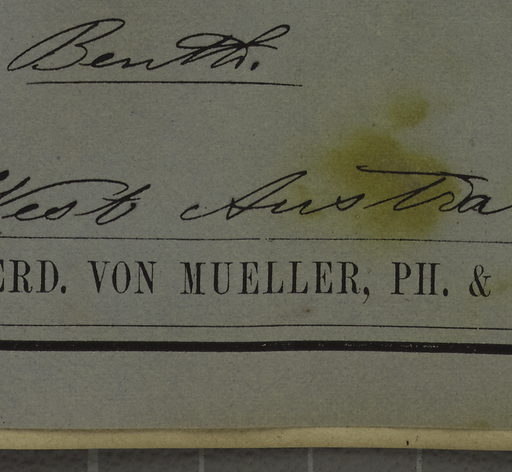 Benth.
West Austra
ERD. VON MUELLER, PH. &